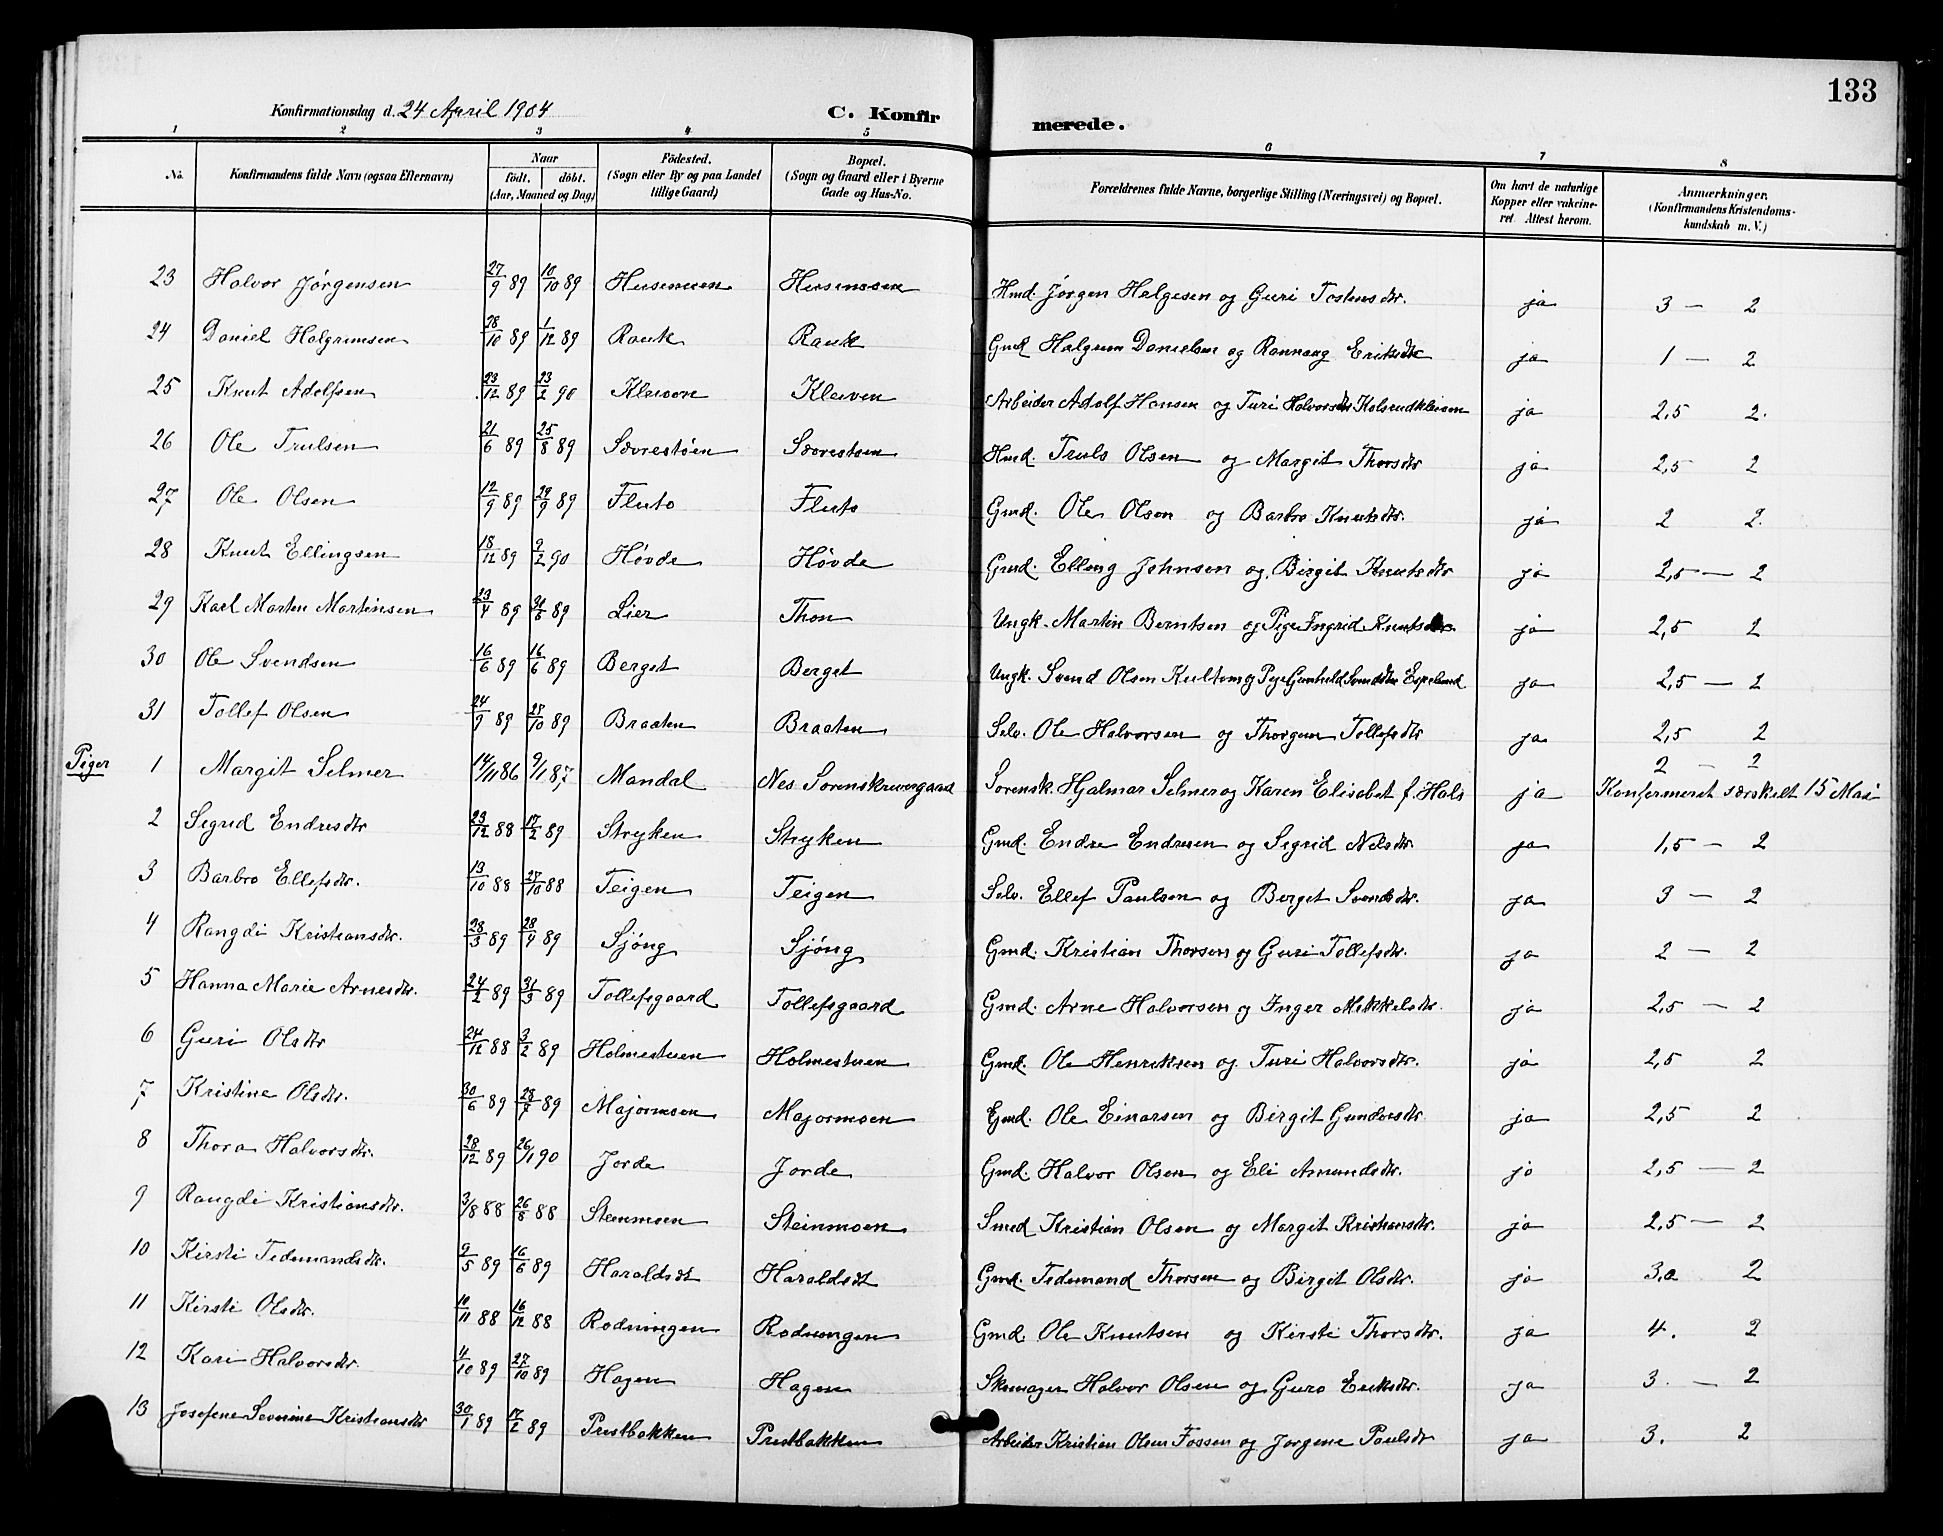 133
Konfirmationsdag d. 24 April 1904 C. Konfirmerede.
1 2 3 4 5 6 7 8
No. Konfirmandens fulde Navn (ogsaa Efternavn) Naar födt. döbt. (Aar, Maaned og Dag) Födested. (Sogn eller By og paa Landet tillige Gaard) Bopæl. (Sogn og Gaard eller i Byerne Gade og Hus-No. Forældrenes fulde Navne, borgerlige Stilling (Næringsvei) og Bopæl. Om havt de naturlige Kopper eller vakcineret. Attest herom. Anmærkninger. (Konfirmandens Kristendomskundskab m. V.)
23 Halvor Jørgensen 27/9 89 10/10 89 Husemoen Husemoen Hmd. Jørgen Helgesen og Guri Tostensdtr. ja 3 — 2
24 Daniel Halgrimsen 28/10 89 1/12 89 Rauk Rauk Gmd Halgrim Danielsen og Rannaug Eriksdtr ja 1 — 2
25 Knut Adolfsen 23/12 89 23/2 90 Kleiven Kleiven Arbeider Adolf Hansen og Turi Halvorsdtr Kolsrudkleiven ja 2,5 2.
26 Ole Trulsen 21/6 89 25/8 89 Sævrestøen Sævrestøen Hmd. Truls Olsen og Margit Thorsdtr ja 2,5 2
27 Ole Olsen 12/9 89 29/9 89 Fluto Fluto Gmd. Ole Olsen og Barbro Knutsdtr. ja 2 2.
28 Knut Ellingsen 18/12 89 2/2 90 Hövde Hövde Gmd. Elling Johnsen og Birgit Knutsdtr ja 2,5 — 2
29 Karl Marten Martinsen 23/4 89 /6 89 Lier Thon Ungk. Martin Berntsen og Pige Ingrid Knutsdtr. ja 2,5 2
30 Ole Svendsen 16/6 89 16/6 89 Berget Berget Ungk. Svend Olsen og Pige Gunhild Svendsdtr Espelund ja 2,5 — 2
31 Tollef Olsen 24/9 89 27/10 89 Braaten Braaten Selv. Ole Halvorsen og Thorgun Tollefsdtr ja 2,5 2
Piger 1 Margit Selmer 14/11 86 9/1 87 Mandal Nes Sorenskrivergaard Sorensk. Hjalmar Selmer og Karen Elisabet f. Hals ja 2 — 2 Konfirmeret særskilt 15 Mai
2 Sigrid Endresdtr 23/12 88 17/2 89 Stryken Stryken Gmd. Endre Endresen og Sigrid Nilsdtr. ja 1,5 — 2
3 Barbro Ellefsdtr. 13/10 88 27/10 88 Teigen Teigen Selv. Ellef Paulsen og Berget Svendsdtr. ja 3 — 2
4 Rangdi Kristiansdtr. 28/3 89 28/4 89 Sjöng Sjöng Gmd. Kristian Thorsen og Guri Tollefsdtr. ja 2 — 2
5 Hanna Marie Arnesdtr. 24/2 89 31/3 89 Tollefsgaard Tollefsgaard Gmd. Arne Halvorsen og Inger Mikkelsdtr. ja 2,5 — 2
6 Guri Olsdtr 24/12 88 3/2 89 Holmestuen Holmestuen Gmd. Ole Henriksen og Turi Halvorsdtr. ja 2,5 2
7 Kristine Olsdtr. 30/6 89 28/7 89 Majormoen Majormoen Gmd. Ole Einarsen og Birgit Gundersdtr ja 2,5 2
8 Thora Halvorsdtr. 28/12 89 26/1 90 Jorde Jorde Gmd. Halvor Olsen og Eli Amundsdtr. ja 2,5 — 2
9 Rangdi Kristiansdtr. 3/8 88 26/8 88 Steinmoen Steinmoen Smed Kristian Olsen og Margit Kristiansdtr. ja 2,5 — 2
10 Kirsti Tidemandsdtr. 9/5 89 16/6 89 Haraldset Haraldset Gmd. Tidemand Thorsen og Birgit Olsdtr. ja 3,0 2
11 Kirsti Olsdtr. 10/11 88 16/12 88 Rodningen Rodningen Gmd. Ole Knutsen og Kirsti Thorsdtr. ja 4. 2
12 Kari Halvorsdtr. 4/10 89 27/10 89 Hagen Hagen Skomager Halvor Olsen og Guro Eriksdtr. ja 3. — 2
13 Josefine Severine Kristiansdtr 30/1 89 17/2 89 Prestbakken Prestbakken Arbeider Kristian Olsen Fossen og Jorgine Paulsdtr ja 3. 2